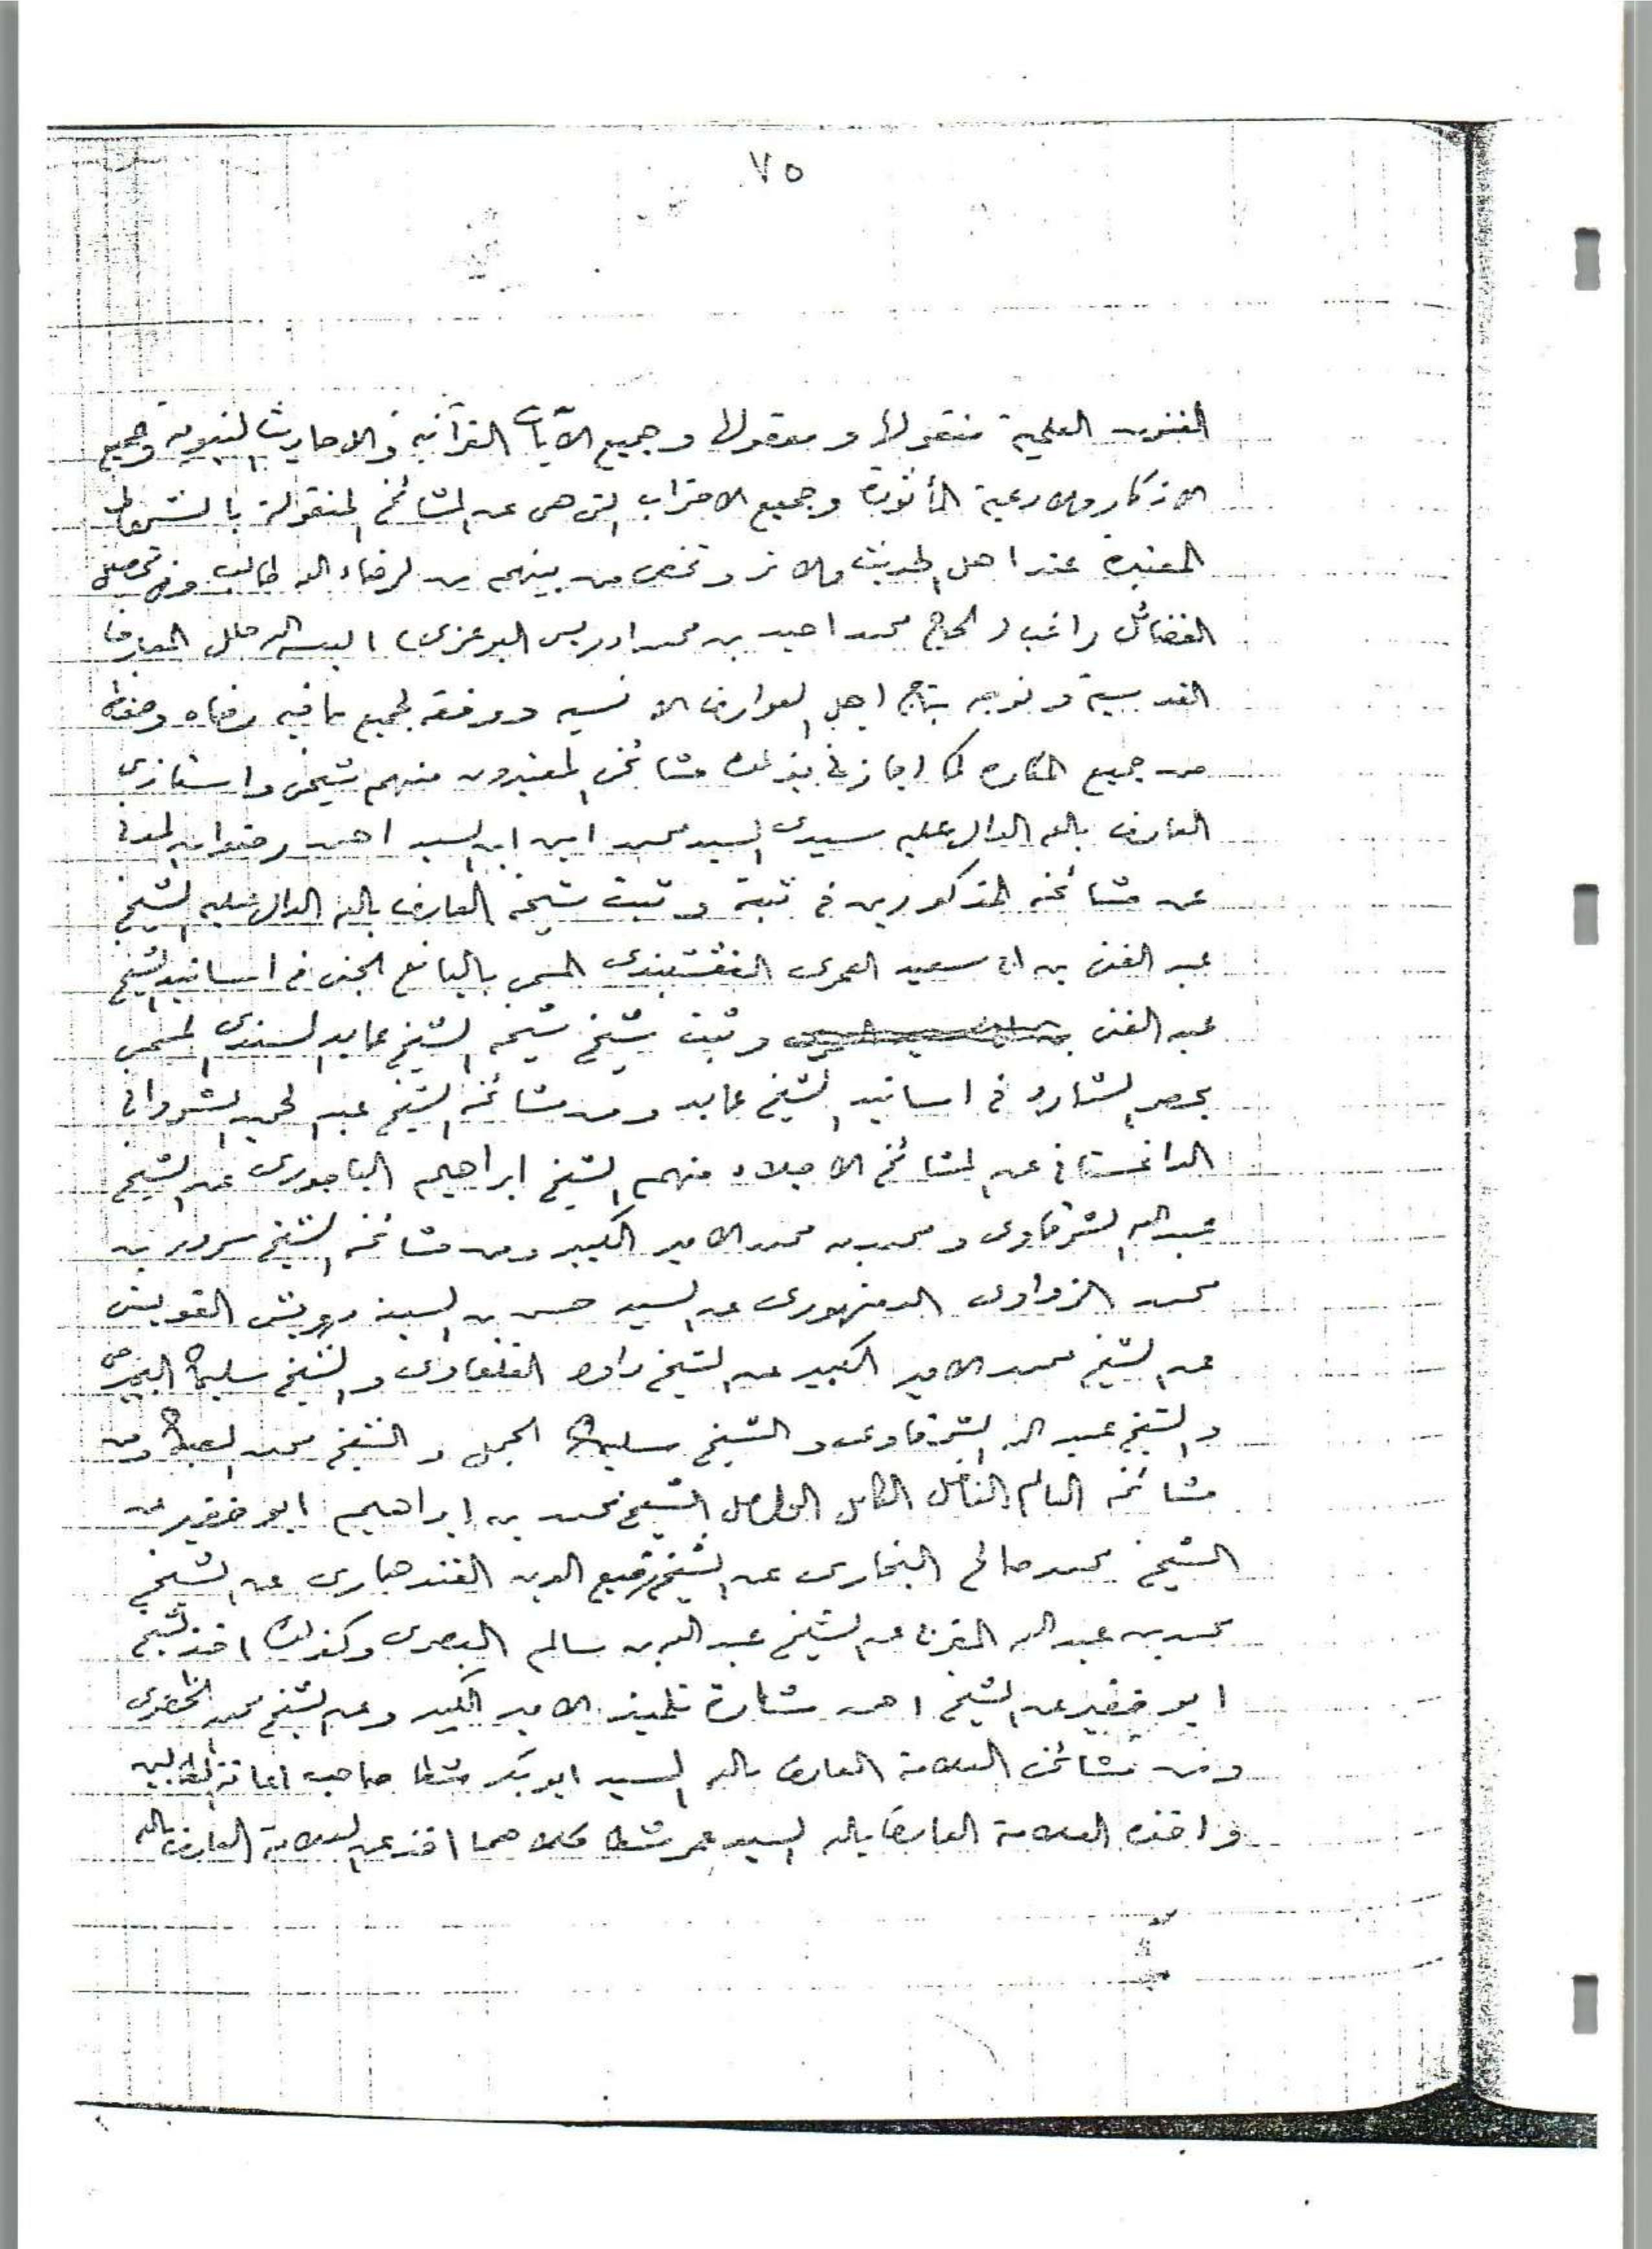 ٧٥
الفنون العلمية منقولها ومعقولها وجميع الآيات القرآنية والاحاديث النبوية وجميع
الاذكار والادعية المأثورة وجميع الاحزاب التي هي عن المشائخ المنقولة بالشروط
المعتبرة عند اهل الحديث والاثر وتخص من بينهم من لرضاء الله طالب وفي تحصيل
الفضائل راغب (الحاج محمد احيد بن محمد ادريس البوغري) البسه الله حلل المعارف
القدسية وتوجه بتاج اهل العوارف الانسية ووفقه لجميع ما فيه رضاه وحفظه
من جميع المكاره كما اجازني بذلك مشائخي المعتبرون منهم شيخي واستاذي
العارف بالله الدال عليه سيدي السيد محمد امين ابن السيد احمد رضوان المدني
عن مشائخه المذكورين في ثبته وثبت شيخه العارف بالله الدال عليه الشيخ
عبد الغني بن ابي سعيد العمري النقشبندي المسمى باليانع الجني في اسانيد الشيخ
عبد الغني وثبت شيخ شيخه الشيخ عابد السندي المسمى
بحصر الشارد في اسانيد الشيخ عابد ومن مشائخه الشيخ عبد الحميد الشرواني
الداغستاني عن المشائخ الاجلاء منهم الشيخ ابراهيم الباجوري عن الشيخ
عبد الله الشرقاوي ومحمد بن محمد الامير الكبير ومن مشائخه الشيخ سرور بن
محمد الزواوي الدمنهوري عن السيد حسن بن السيد درويش القويسني
عن الشيخ محمد الامير الكبير عن الشيخ داود القلعاوي والشيخ سليمان البجيرمي
والشيخ عبد الله الشرقاوي والشيخ سليمان الجمل والشيخ محمد الصبان ومن
مشائخه العالم الفاضل الكامل الواصل الشيخ محمد بن ابراهيم ابو خضير عن
الشيخ محمد صالح البخاري عن الشيخ رفيع الدين القندهاري عن الشيخ
محمد بن عبد الله المغربي عن الشيخ عبد الله بن سالم البصري وكذلك اخذ الشيخ
ابو خضير عن الشيخ احمد تلميذ الامير الكبير وعن الشيخ محمد الخضري
ومن مشائخي العلامة العارف بالله السيد ابو بكر شطا صاحب اعانة الطالبين
واخيه العلامة العارف بالله السيد عمر شطا كلاهما اخذ عن العلامة العارف بالله